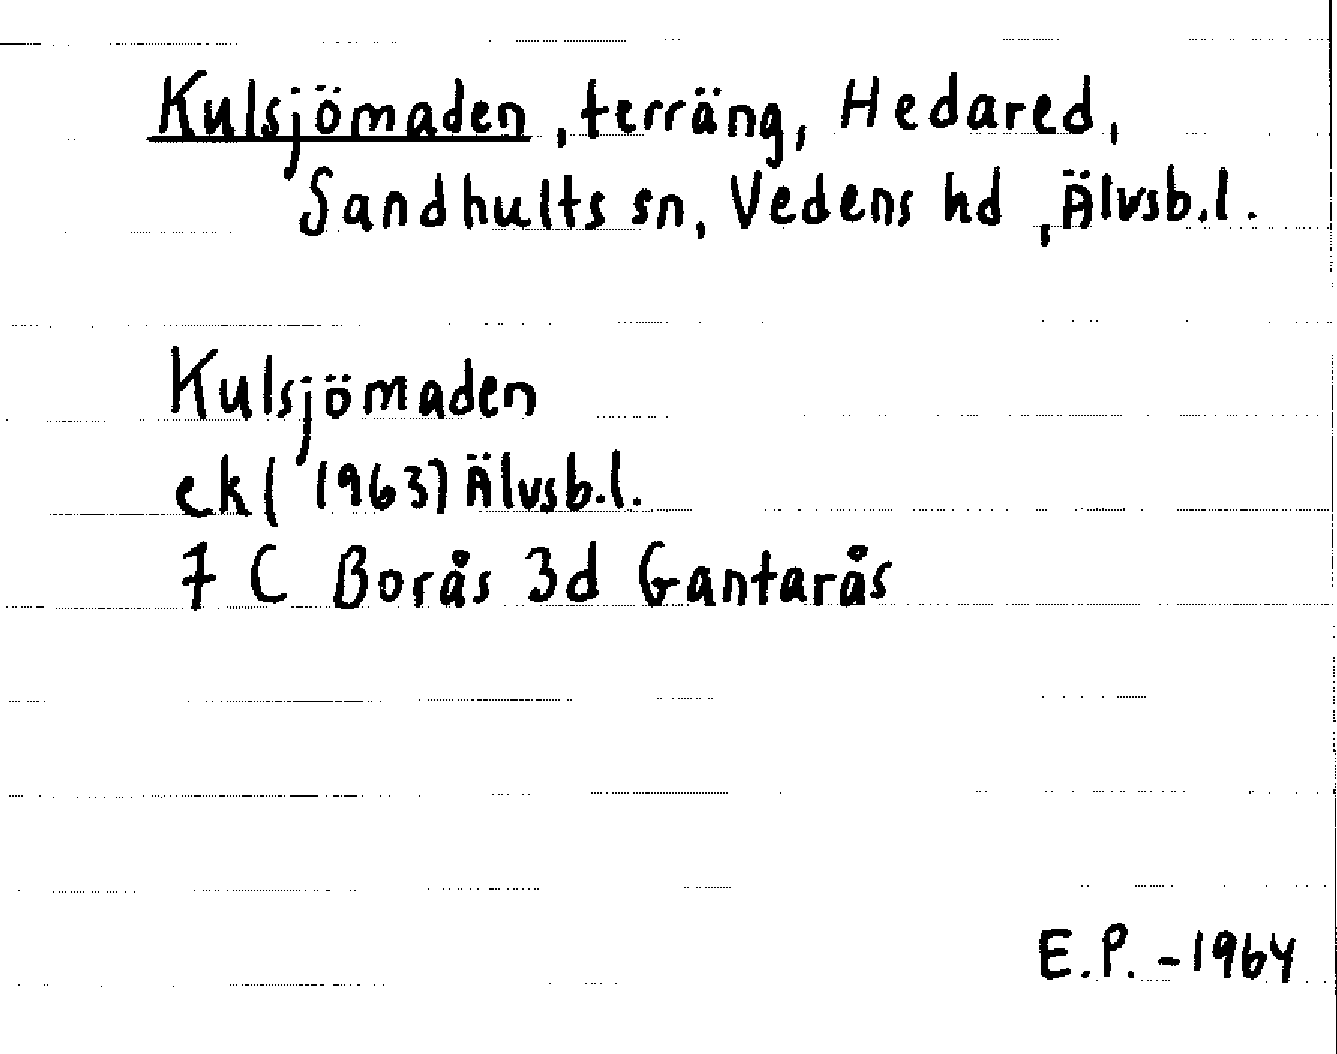 Kulsjömaden, terräng, Hedared,
Sandhults sn, Vedens hd, Älvsb.l.
Kulsjömaden
ek (1963) Älvsb.l.
7 C Borås 3d Gantarås
E.P. -1964